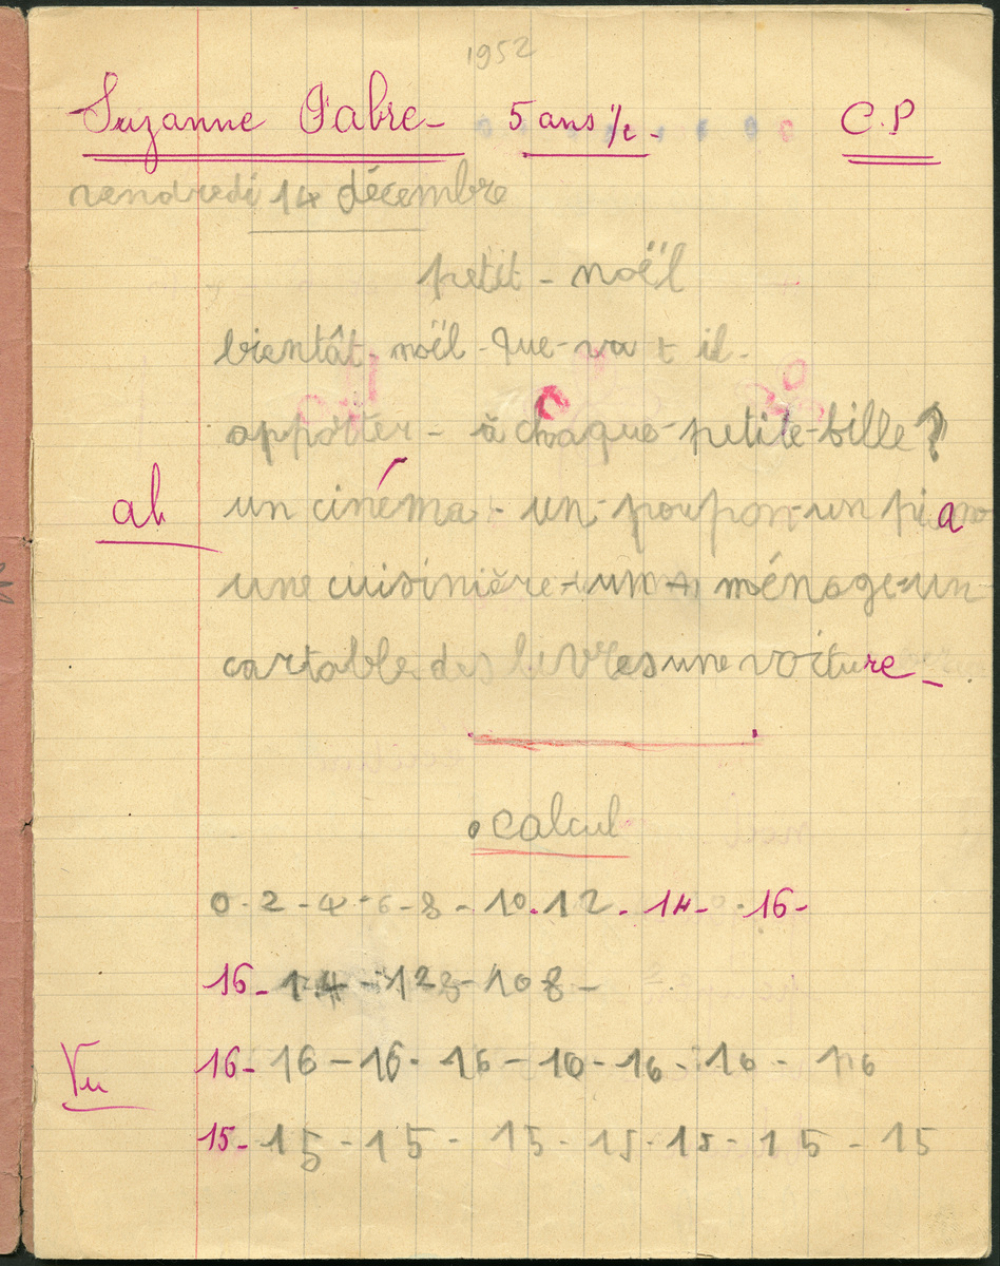 1952
Suzanne Fabre - 5 ans ½ - C.P
vendredi 14 décembre
petit - noël
bientât noël - que - va t il -
apporter - à chaque petite - bille ?
ab un cinéma - un - poupon - un piano
une cuisinière - un ménage - un
cartable des livres une voiture -
calcul
0 - 2 - 4 - 6 - 8 - 10 - 12 - 14 - 16 -
16 - 14 - 12 8 - 10 8 -
Vu 16 - 16 - 16 - 16 - 10 - 16 - 16 - 16
15 - 15 - 15 - 15 - 15 - 15 - 15 - 15